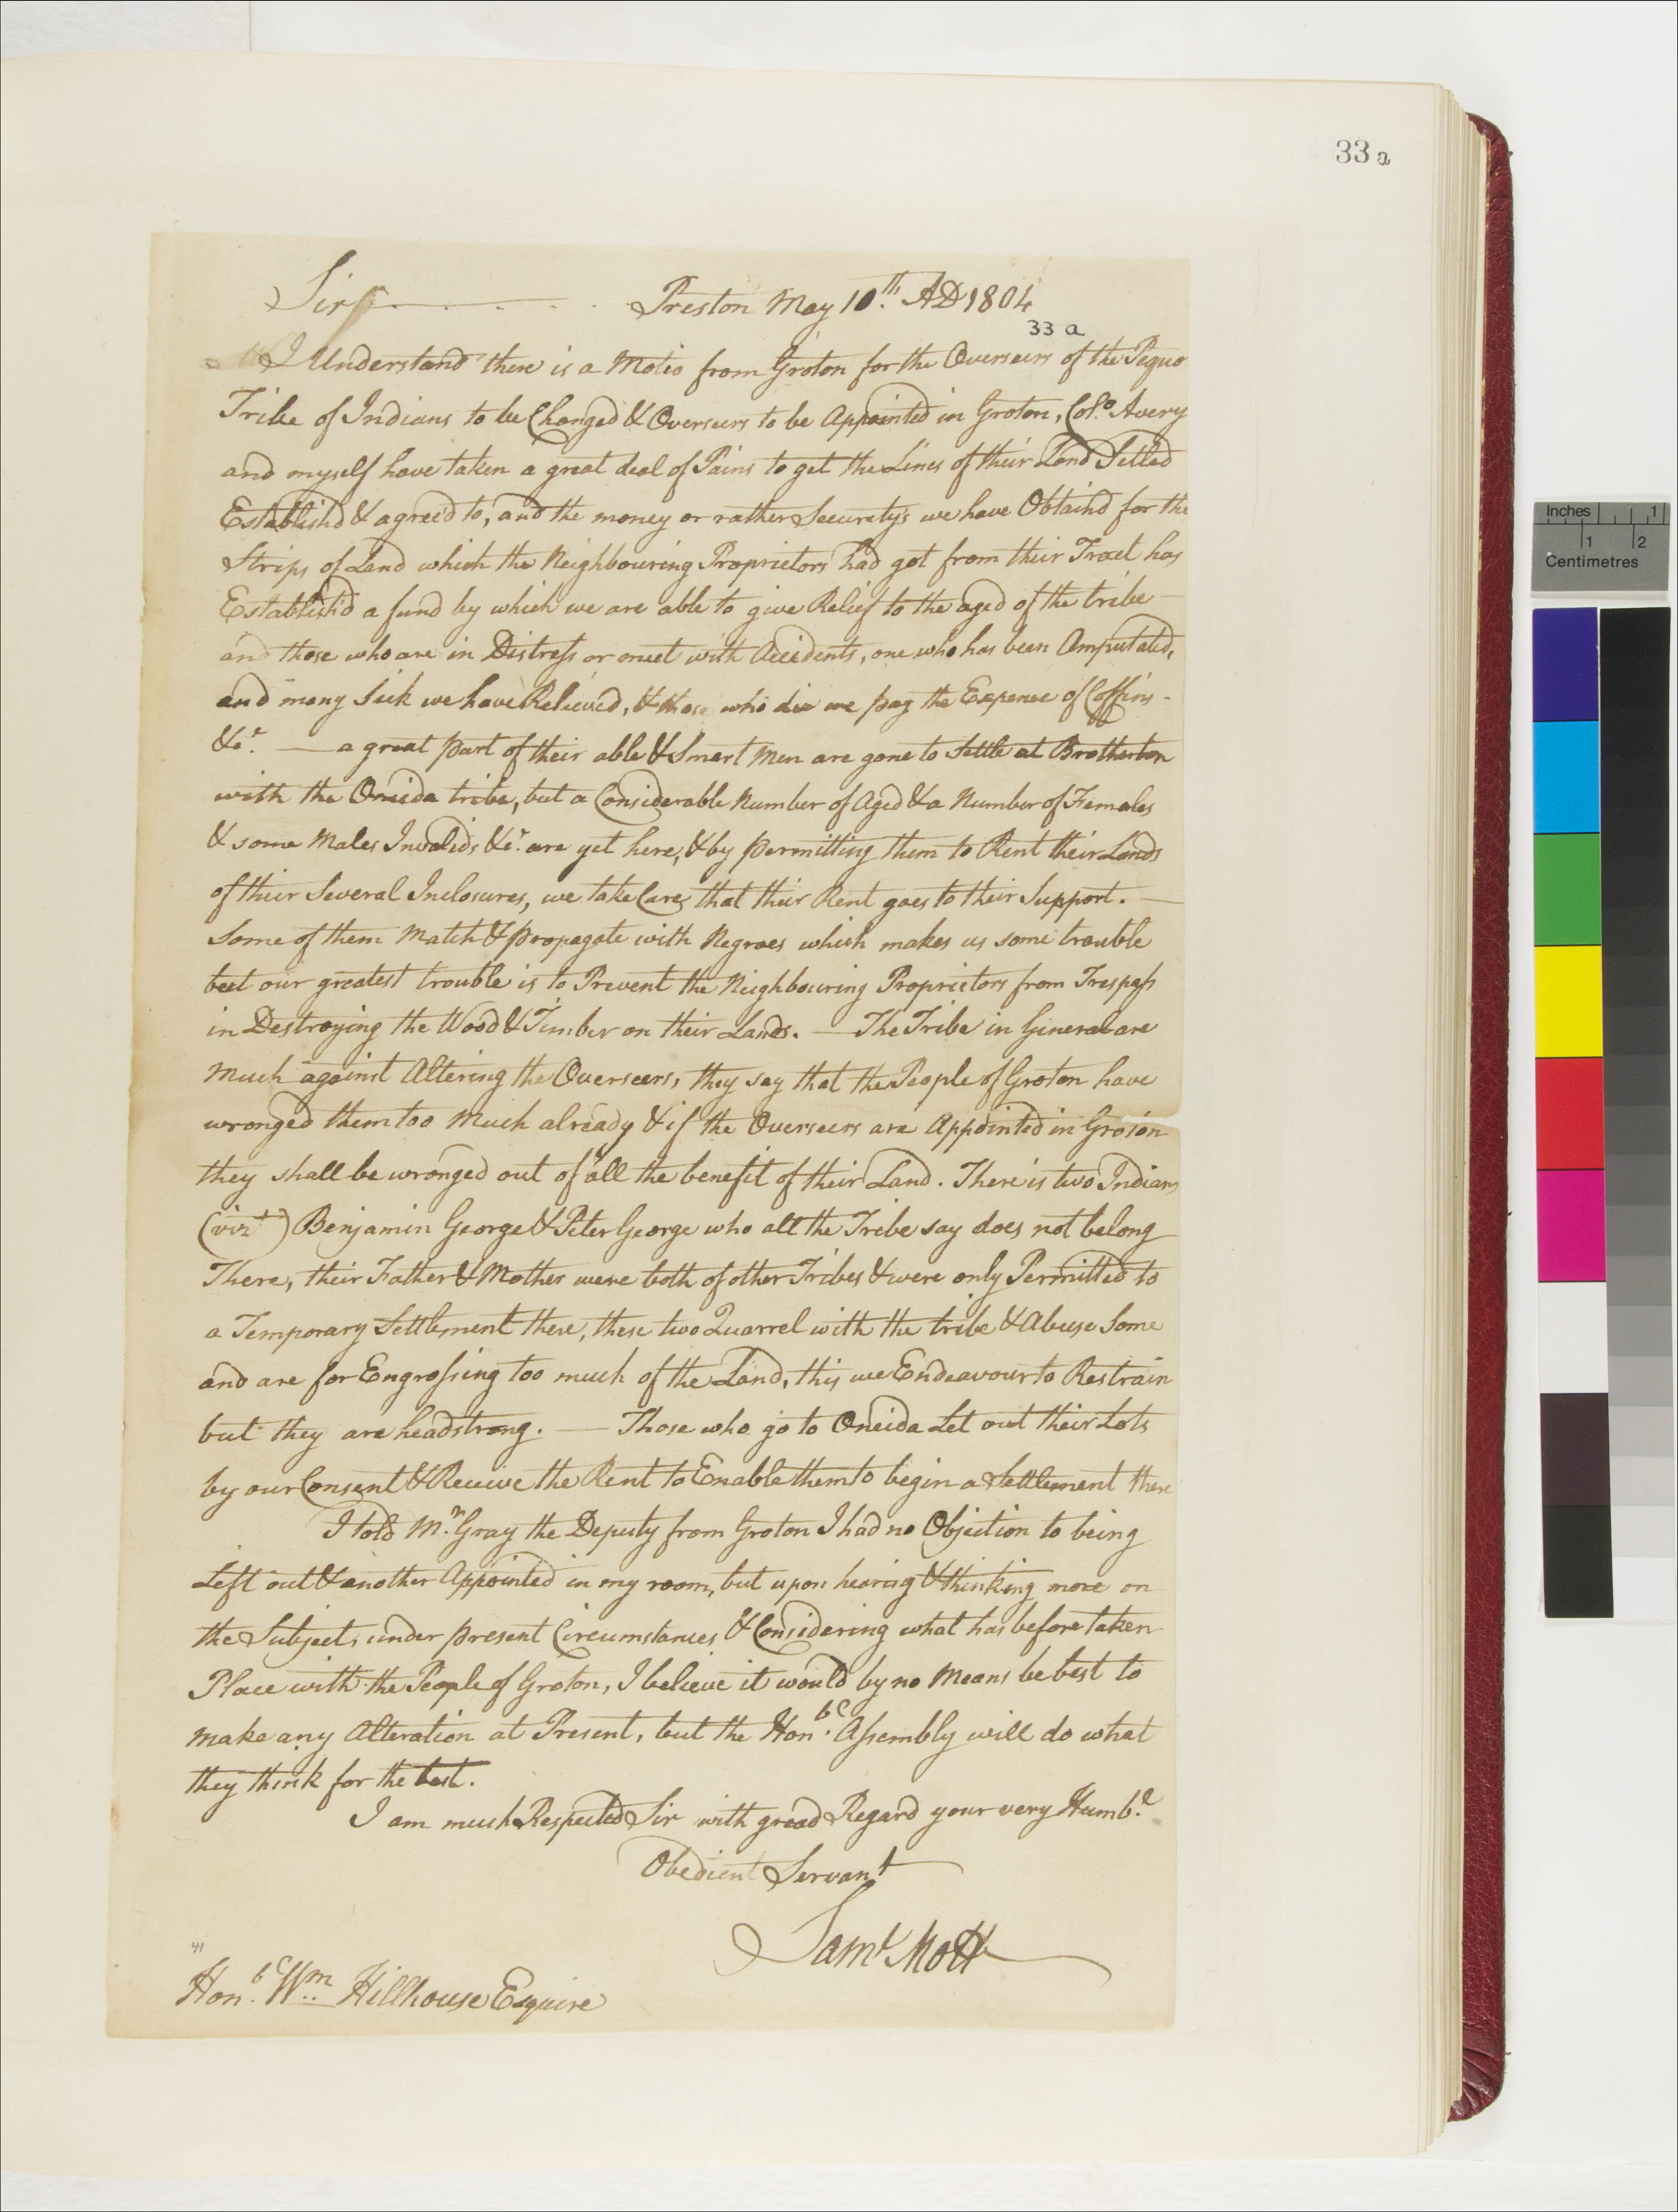 33 a
Sir Preston May 10th. AD 1804
33 a
I Understand there is a Motio from Groton for the Overseers of the Pequo
Tribe of Indians to be Changed & Overseers to be Appointed in Groton, Col.o Avery
and myself have taken a great deal of Pains to get the Lines of their Land Setled
Establish'd & agree'd to, and the money or rather Security's we have Obtain'd for the
Strips of Land which the Neighbouring Proprietors had got from their Tract has
Establish'd a fund by which we are able to give Relief to the aged of the tribe —
and those who are in Distress or meet with Accidents, one who has been Amputated,
and many Sick we have Relieved, & those who die we pay the Expence of Coffins -
&c. — a great part of their able & Smart Men are gone to Settle at Brotherton
with the Oneida tribe, but a Considerable Number of Aged & a Number of Females
& some Males Invalids &c. are yet here, & by permitting them to Rent their Lands
of their Several Inclosures, we take Care that their Rent goes to their Support. —
Some of them Match & propagate with Negroes which makes us some trouble
but our greatest trouble is to Prevent the Neighbouring Proprietors from Trespass
in Destroying the Wood & Timber on their Lands. — The Tribe in General are
Much against Altering the Overseers, they say that the People of Groton have
wronged them too Much already & if the Overseers are Appointed in Groton
they shall be wronged out of all the benefit of their Land. There is two Indians
(vizt) Benjamin George & Peter George who all the Tribe say does not belong
There, their Father & Mother were both of other Tribes & were only Permitted to
a Temporary Settlement there, these two Quarrel with the tribe & Abuse Some
and are for Engrossing too much of the Land, this we Endeavour to Restrain
but they are headstrong. — Those who go to Oneida Let out their Lots
by our Consent & Receive the Rent to Enable them to begin a Settlement there
I told Mr. Gray the Deputy from Groton I had no Objection to being
Left out & another Appointed in my room, but upon hearing & thinking more on
the Subject, under present Circumstances & Considering what has before taken
Place with the People of Groton, I believe it would by no Means be best to
make any Alteration at Present, but the Honbe. Assembly will do what
they think for the best.
I am much Respected Sir with gread Regard your very Humbe.
Obedient Servant
Saml Mott
41
Honbe. Wm. Hillhouse Esquire
Inches 1
1 2
Centimetres